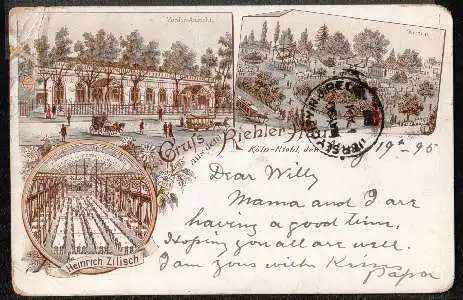 Vorder-Ansicht.
Gruß
aus dem
Riehler-
Köln-Riehl, den
19 - 95
JERSEY
Dear Willy
Mama and I are
having a good time.
Hoping you all are well.
I am yours with
Papa
Heinrich Zilisch